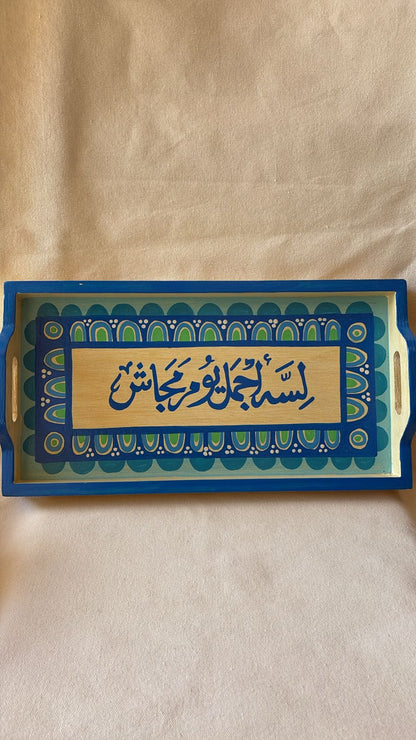 لِسَّه أجمل يَوُم مَجَاش